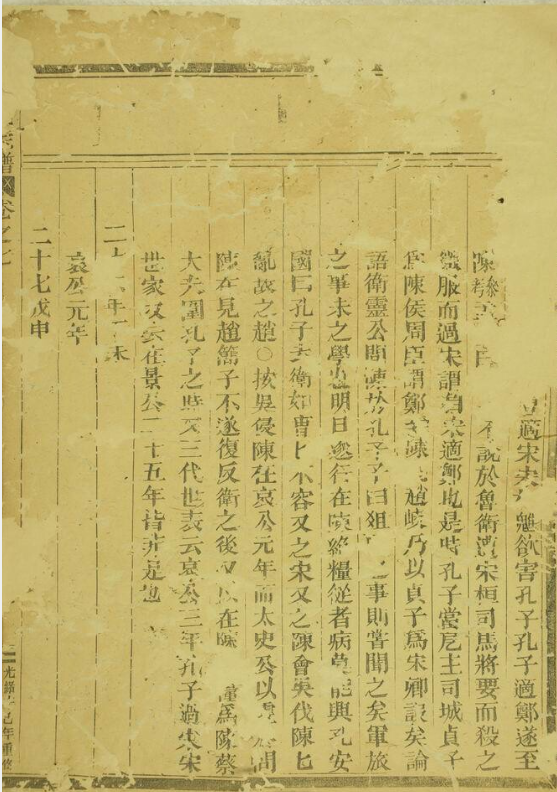 適宋去 魋欲害孔子孔子適鄭遂至
陳
不說於魯衛遭宋桓司馬將要而殺之
微服而過宋謂自宋適鄭也是時孔子當厄主司城貞子
為陳侯周臣謂鄭 陳 趙岐乃以貞子為宋卿誤矣論
語衛靈公問陳於孔子子曰俎 事則嘗聞之矣軍旅
之事未之學也明日遂行在陳絕糧從者病莫能興孔安
國曰孔子去衛如曹曹不容又之宋又之陳會吳伐陳
亂故之趙○按吳侵陳在哀公元年而太史公以 間
陳在見趙簡子不遂復反衛之後又以在 陳蔡
大夫圍孔子之時又三代世表云哀公三年孔子過宋宋
世家又云在景公二十五年皆非是也
二十 年 未
哀公元年
二十七戊申
宗譜 卷之
光緒 巳年重修